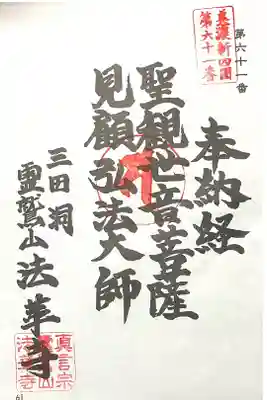 第六十一番
美濃新四国
第六十一番
奉納経
聖観世音菩薩
見顧弘法大師
三田洞
霊鷲山法華寺
真言宗
霊鷲山
法華寺
61